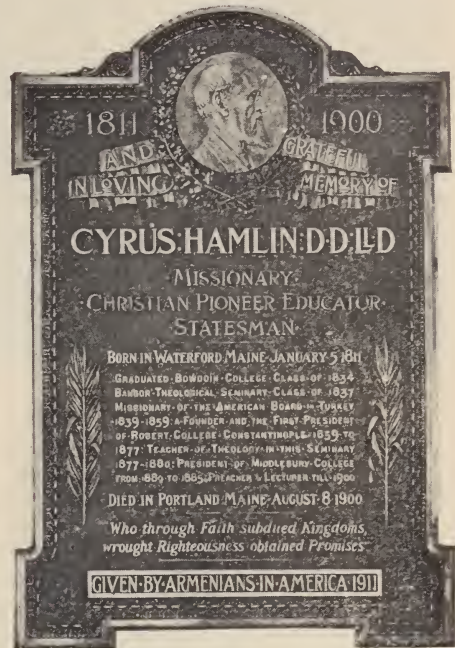 1811 1900
AND GRATEFUL
IN LOVING MEMORY OF
CYRUS·HAMLIN·D·D·LL·D
·MISSIONARY·
·CHRISTIAN·PIONEER·EDUCATOR·
·STATESMAN·
BORN IN WATERFORD·MAINE·JANUARY·5·1811
GRADUATED·BOWDOIN·COLLEGE·CLASS·OF·1834
BANGOR·THEOLOGICAL·SEMINARY·CLASS·OF·1837
MISSIONARY·OF·THE·AMERICAN·BOARD·IN·TURKEY
1839-1859·A·FOUNDER·AND·THE·FIRST·PRESIDENT
OF·ROBERT·COLLEGE·CONSTANTINOPLE·1859·TO
1877·TEACHER·OF·THEOLOGY·IN·THIS·SEMINARY
1877-1880·PRESIDENT·OF·MIDDLEBURY·COLLEGE
FROM·1880·TO·1885·PREACHER·&·LECTURER·TILL·1900
DIED IN PORTLAND·MAINE·AUGUST·8·1900
Who through Faith subdued Kingdoms,
wrought Righteousness obtained Promises
GIVEN·BY·ARMENIANS·IN·AMERICA·1911